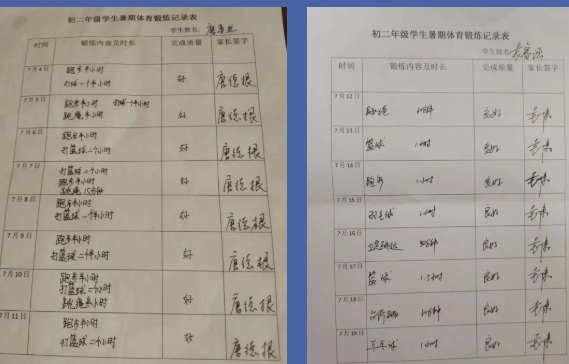 初二年级学生暑期体育锻炼记录表
学生姓名:
时间 锻炼内容及时长 完成质量 家长签字
7月4日 跑步半小时
打球一个半小时 好 唐德根
7月5日 跑步半小时 打球一个半小时
跳绳半小时 好 唐德根
7月6日 跑步半小时
打篮球二个小时 好 唐德根
7月7日 打篮球二个小时
跑步半小时
跳绳15分钟 好 唐德根
7月8日 跑步半小时
打篮球一个半小时 好 唐德根
7月9日 跑步半小时
打篮球二个半小时 好 唐德根
7月10日 跑步半小时
打篮球二个小时
跳绳半小时 好 唐德根
7月11日 跑步半小时
打篮球二个半小时 好 唐德根
初二年级学生暑期体育锻炼记录表
学生姓名:
时间 锻炼内容及时长 完成质量 家长签字
7月12日
跳绳 良好
7月13日
篮球 1小时 良好
7月14日
跑步 1小时 良好
7月15日
羽毛球 1小时 良好
7月16日
良好
7月17日
篮球 1.5小时 良好
7月18日
良好
7月19日
乒乓球 1小时 良好